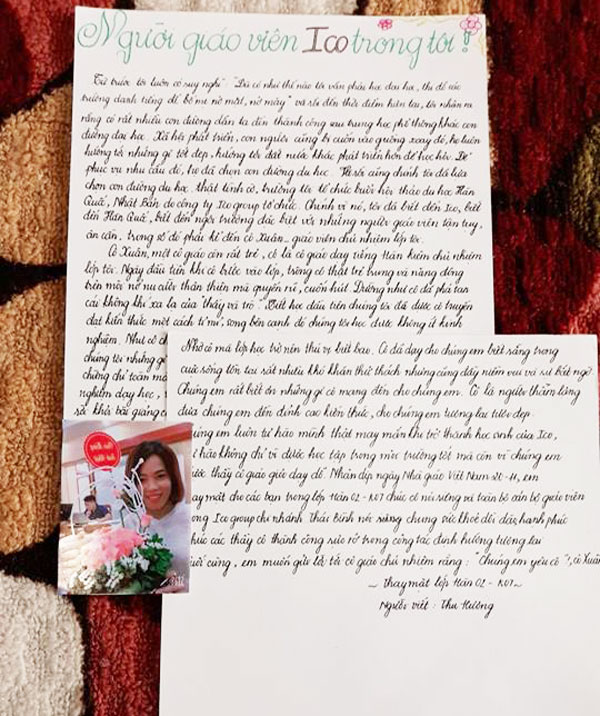 Người giáo viên Ico trong tôi!
Từ trước tôi luôn có suy nghĩ: "Dù có như thế nào tôi vẫn phải học đại học, thi đỗ các
trường danh tiếng để bố mẹ nở mặt, nở mày" và rồi đến thời điểm hiện tại, tôi nhận ra
rằng có rất nhiều con đường dẫn ta đến thành công sau trung học phổ thông khác con
đường đại học. Xã hội phát triển, con người cũng bị cuốn vào guồng xoay đó, họ luôn
hướng tới những gì tốt đẹp, hướng tới đất nước khác phát triển hơn để học hỏi. Để
phục vụ nhu cầu đó, họ đã chọn con đường du học. Và rồi cũng chính tôi đã lựa
chọn con đường du học. Thật tình cờ, trường tôi tổ chức buổi hội thảo du học Hàn
Quốc, Nhật Bản do công ty Ico group tổ chức. Chính vì nó, tôi đã biết đến Ico, biết
đến Hàn Quốc, biết đến ngôi trường đặc biệt với những người giáo viên tận tụy,
ân cần, trong số đó phải kể đến cô Xuân _ giáo viên chủ nhiệm lớp tôi.
Cô Xuân, một cô giáo còn rất trẻ, cô là cô giáo dạy tiếng Hàn kiêm chủ nhiệm
lớp tôi. Ngày đầu tiên khi cô bước vào lớp, trông cô thật trẻ trung và năng động
trên môi nở nụ cười thân thiện mà quyến rũ, cuốn hút. Dường như cô đã phá tan
cái không khí xa lạ của "thầy và trò". Tiết học đầu tiên chúng tôi đã được cô truyền
đạt kiến thức một cách tỉ mỉ, song bên cạnh đó chúng tôi học được không ít kinh
nghiệm. Như cô ch
chúng tôi những gì
chứng chỉ toàn mà
nghiệm dạy học,
sôi khải bài giảng c
Nhờ cô mà lớp học trở nên thú vị biết bao. Cô đã dạy cho chúng em biết rằng trong
cuộc sống tồn tại rất nhiều khó khăn thử thách nhưng cũng đầy niềm vui và sự bất ngờ.
Chúng em rất biết ơn những gì cô mang đến cho chúng em. Cô là người thầm lặng
đưa chúng em đến đỉnh cao kiến thức, cho chúng em tương lai tươi đẹp.
Chúng em luôn tự hào mình thật may mắn khi trở thành học sinh của Ico,
tự hào không chỉ vì được học tập trong môi trường tốt mà còn vì chúng em
được thầy cô giáo giỏi dạy dỗ. Nhân dịp ngày Nhà giáo Việt Nam 20-11, em
thay mặt cho các bạn trong lớp Hàn 02 - K07 chúc cô nói riêng và toàn bộ cán bộ giáo viên
trong Ico group chi nhánh Thái Bình nói chung sức khoẻ dồi dào, hạnh phúc
Chúc các thầy cô thành công rực rỡ trong công tác định hướng tương lai
Cuối cùng, em muốn gửi lời tới cô giáo chủ nhiệm rằng: "Chúng em yêu cô", cô Xuân
~ Thay mặt lớp Hàn 02 - K07 ~
Người viết: Thu Hường